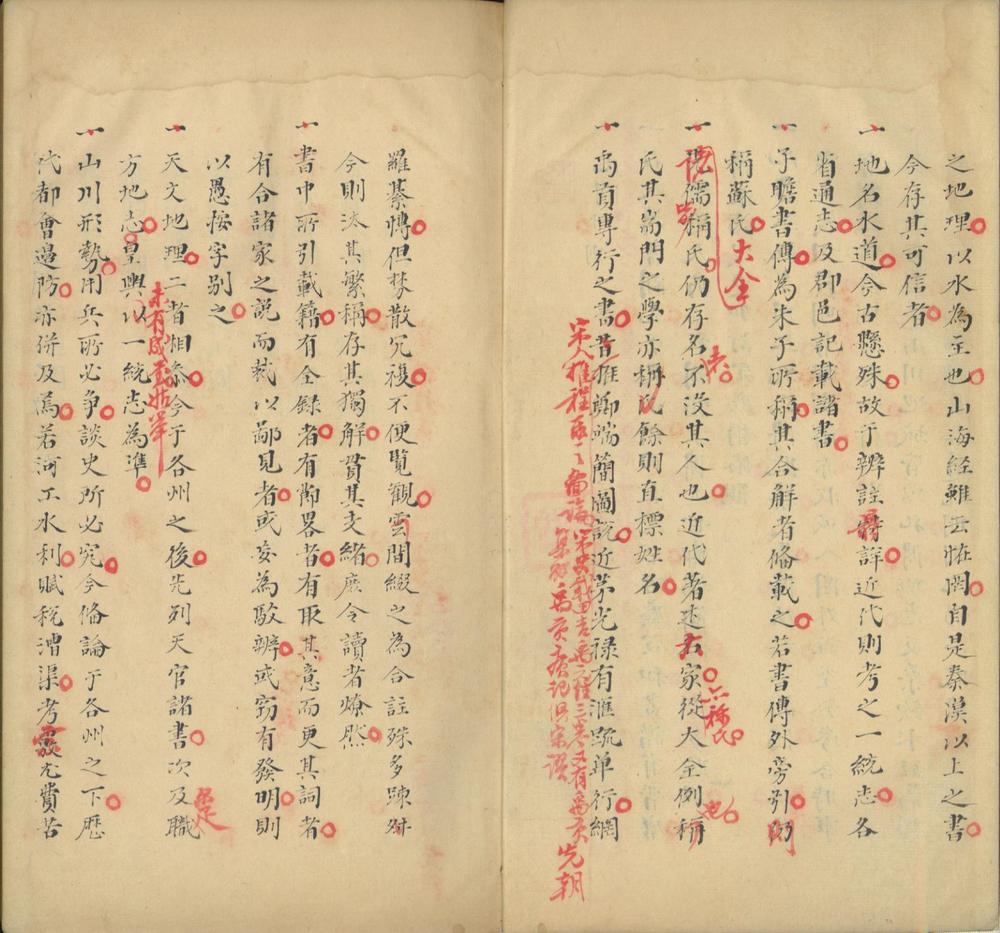 之地理以水為主也山海經雖云恠罔自是秦漢以上之書
今存其可信者
一地名水道今古懸殊故于辨註詳近代則考之一統志各
省通志及郡邑記載諸書
一子瞻書傳為朱子所稱其合解者俻載之若書傳外旁引
稱蘇氏大全
一儒稱氏仍存名不沒其人也近代著述家從大全例稱
氏其耑門之學亦稱氏餘則直標姓名
一禹貢專行之書昔推鄭端簡圖說近茅光祿有滙疏單行網
宋人推程
先朝
羅纂慱但棼散冗複不便覽觀雲間綴之為合註殊多踈舛
今則汰其繁稱存其獨解貫其支緒庶令讀者燎然
一書中所引載籍有全錄者有節畧者有取其意而更其詞者
有合諸家之說而裁以鄙見者或妄為駁辨或窃有發明則
以愚按字别之
一天文地理二者相叅今于各州之後先列天官諸書次及職
未有成書姑畢
方地志皇輿以一統志為準
一山川形勢用兵所必争談史所必究今俻論于各州之下歷
代都會邉防亦併及焉若河工水利賦稅漕渠考尤費苦